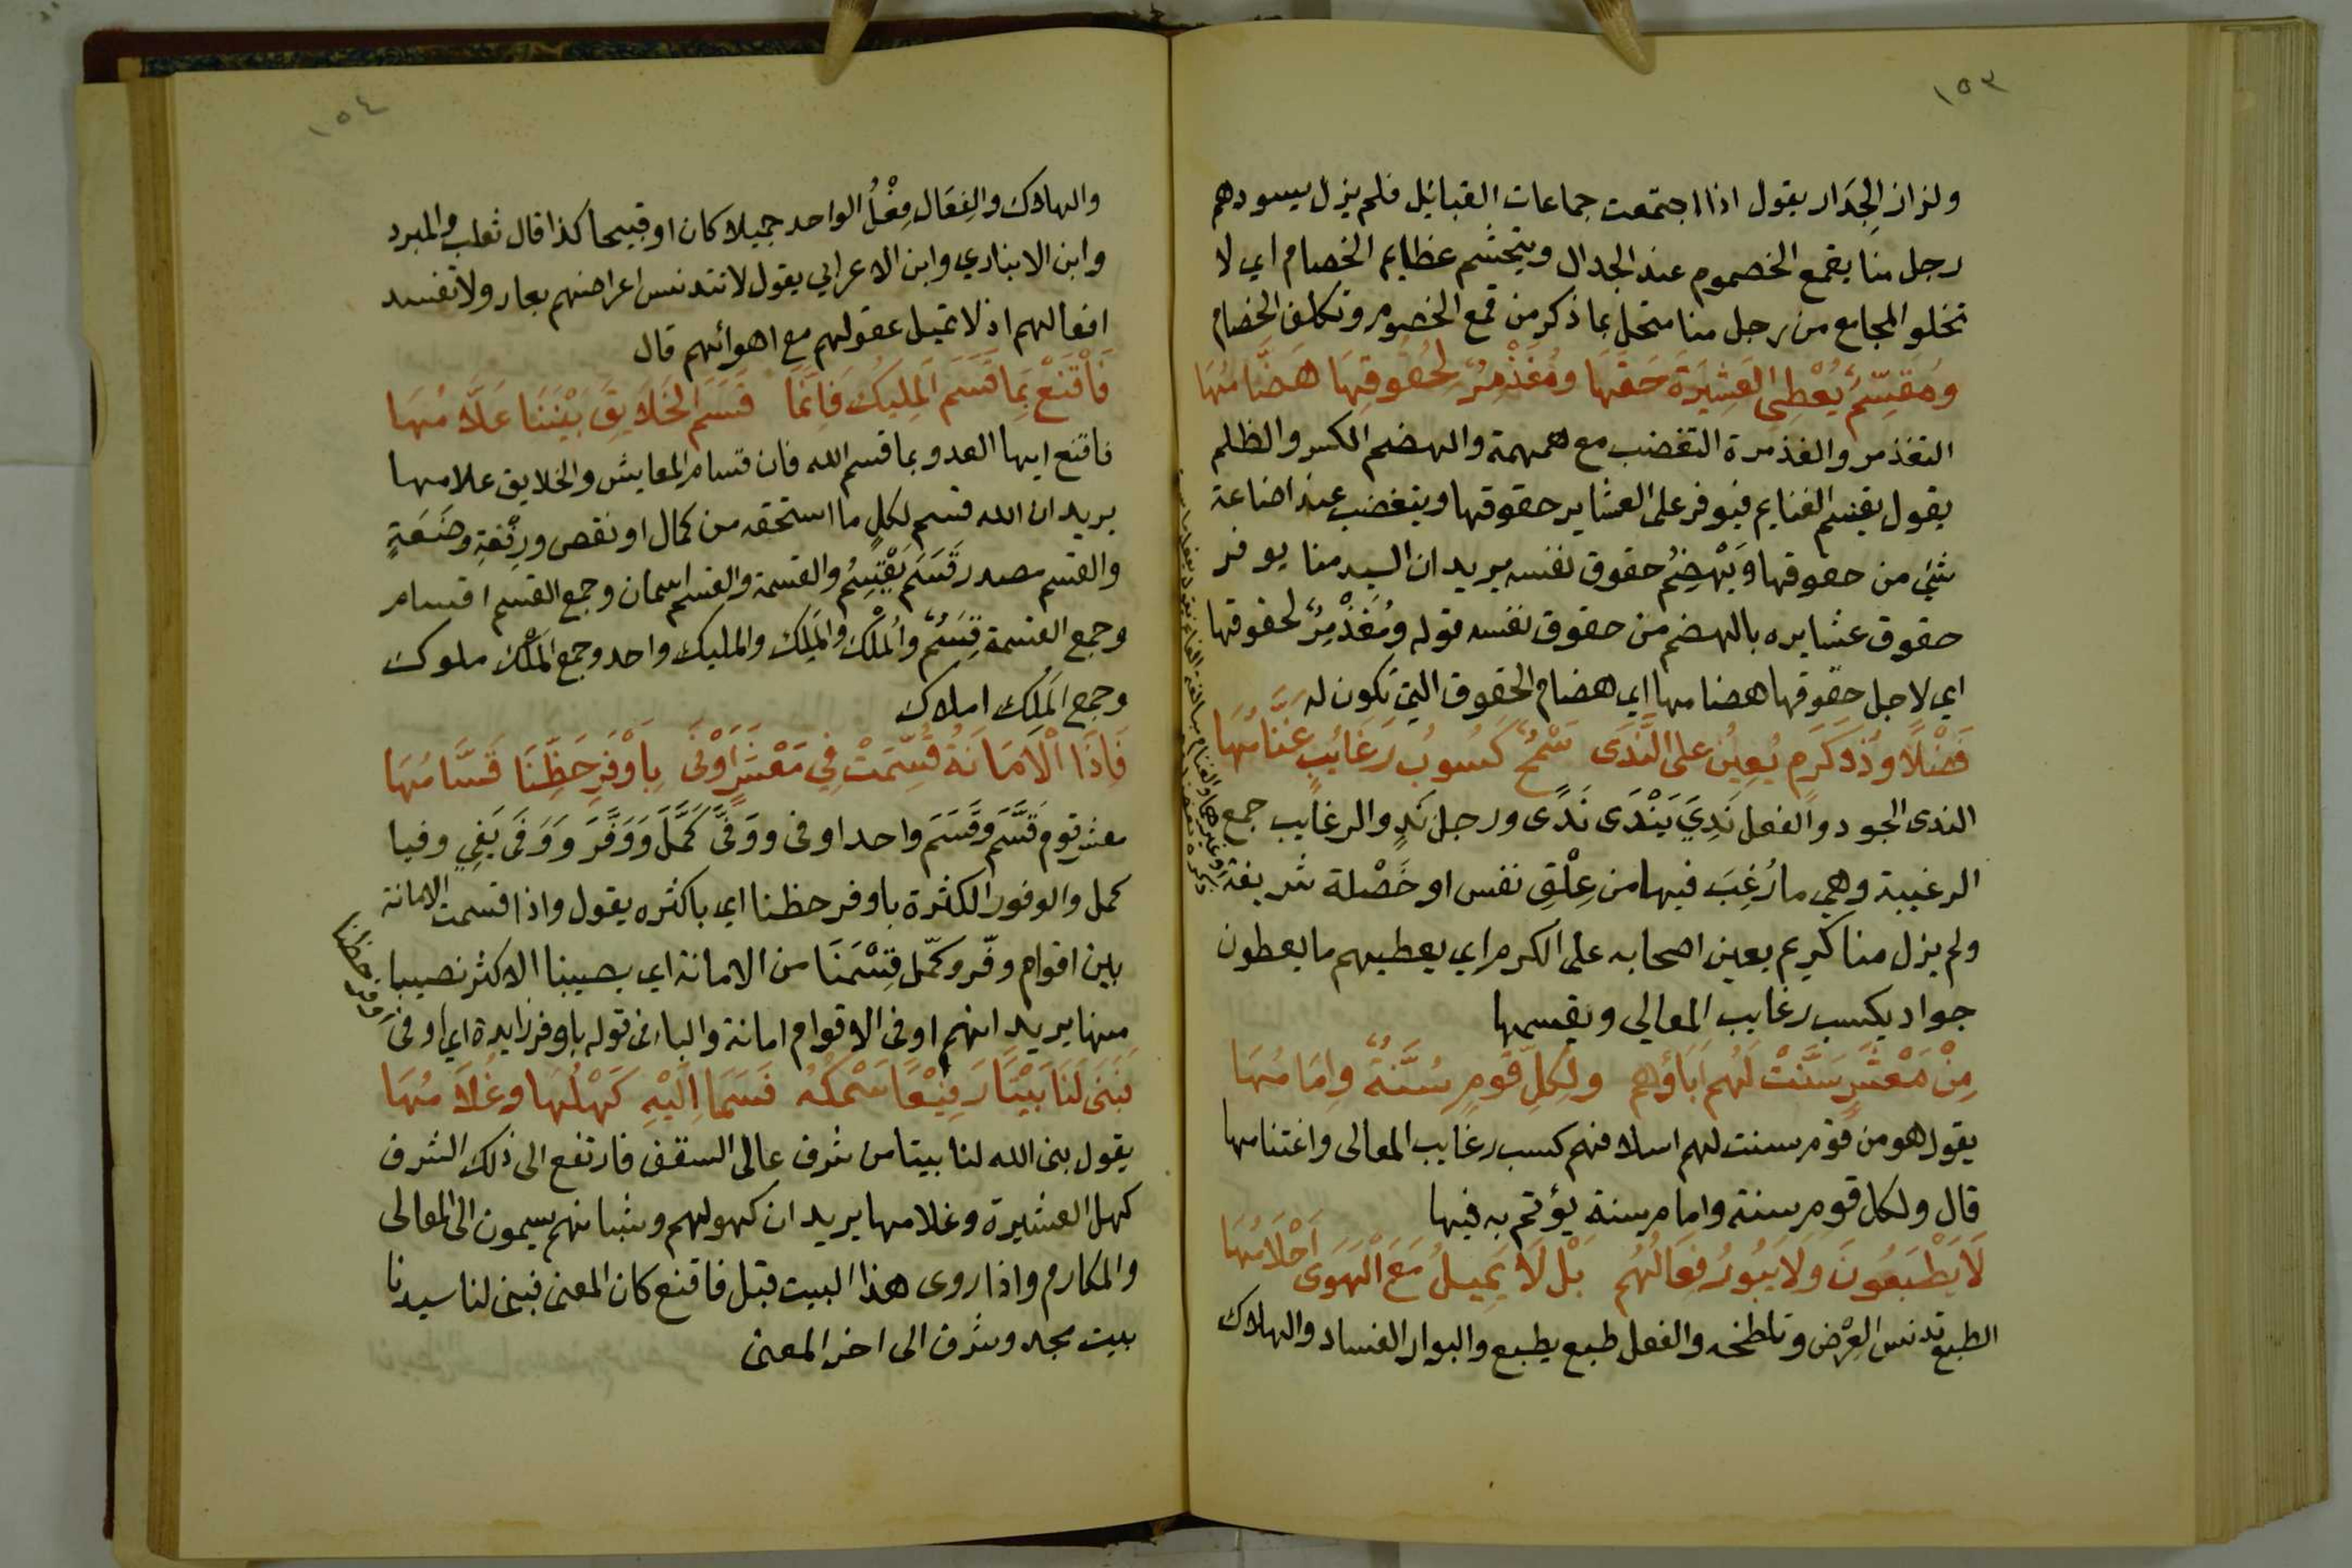 ١٥٣
ولزاز الجدار يقول اذا اجتمعت جماعات القبائل فلم يزل يسودهم
رجل منا يقمع الخصوم عند الجدال ويتجشم عظايم الخصام اي لا
تخلو المجامع من رجل منا متحل بما ذكر من قمع الخصوم وتكلف الخصام
وَمُقَسِّمٌ يُعْطِى العَشِيْرَةَ حَقَّهَا وَمُغَذْمِرٌ لِحُقُوقِهَا هَضَّامُهَا
التغذمر والغذمرة التغضب مع همهمة والهضم الكسر والظلم
يقول يقسم الغنايم فيوفر على العشاير حقوقها ويتغضب عند اضاعة
شئ من حقوقها وَيَهْضِمُ حقوق نفسه يريد ان السيد منا يوفر
حقوق عشايره بالهضم من حقوق نفسه قوله وَمُغَذْمِرٌ لحقوقها
اي لاجل حقوقها هضامها اي هضام الحقوق التي تكون له
فَضْلًا وَذُو كَرَمٍ يُعِيْنُ على النَّدَى سَمْحٌ كَسُوبُ رَغَائِبٍ غَنَّامُهَا
الندى الجود والفعل نَدِيَ يَنْدَى نَدًى ورجل نَدٍ والرغايب جمع
الرغيبة وهي ما رُغِبَ فيها من عِلْقِ نفس او خَصْلة شريفة
ولم يزل منا كريم يعين اصحابه على الكرم اي يعطيهم ما يعطون
جواد يكسب رغايب المعالي ويقسمها
مِنْ مَعْشَرٍ سَنَّتْ لَهُم اَبَاؤُهم ولِكُلِّ قَومٍ سُنَّةٌ وَاِمَامُهَا
يقول هو من قوم سنت لهم اسلافهم كسب رغايب المعالى واغتنامها
قال ولكل قوم سنة وامام سنة يؤتم به فيها
لَا يَطْبَعُونَ وَلَا يَبُورُ فِعَالُهُم بَلْ لَا يَمِيلُ مَعَ الْهَوَى اَحْلَامُهَا
الطبع تدنس العِرْض وتلطخه والفعل طبع يطبع والبوار الفساد والهلاك
١٥٤
والهلاك والفِعَال فِعْلُ الواحد جميلا كان او قبيحا كذا قال ثعلب والمبرد
وابن الانباري وابن الاعرابي يقول لا تتدنس اعراضهم بعار ولا تفسد
افعالهم اذ لا تميل عقولهم مع اهوائهم قال
فَاقْنَعْ بِمَا قَسَمَ المَلِيكُ فَاِنَّمَا قَسَمَ الخَلَايِقَ بَيْنَنَا عَلَّامُهَا
فاقنع ايها العدو بما قسم الله فان قسام المعايش والخلايق علامها
يريد ان الله قسم لكلٍ ما استحقه من كمال او نقص ورِفْعَةٍ وضَعَةٍ
والقسم مصدر قَسَمَ يَقْسِمُ والقسمة والقسم اسمان وجمع القسم اقسام
وجمع القسمة قِسَمٌ والمَلْك والمَلِك والمليك واحد وجمع المَلْك ملوك
وجمع المَلِك املاك
فَاِذَا الْاَمَانَةُ قُسِّمَتْ فِي مَعْشَرٍ اَوْفَى بِاَوْفَرِ حَظِّنَا قَسَّامُهَا
معشر قوم قَسَّمَ وقَسَمَ واحد اوفى ووَفَّى كَمَّلَ وَوَفَّرَ وَوَفَى يَفِي وفيا
كمل والوفور الكثرة باوفر حظنا اي باكثره يقول واذا قسمت الامانة
بين اقوام وفّر وكمّل قِسْمَنَا من الامانة اي يصيبنا الاكثر نصيبا
منها يريد انهم اوفى الاقوام امانة والباء فى قوله باوفر زايدة اي اوفى
اوفر حظنا
فَبَنَى لَنَا بَيْتًا رَفِيْعًا سَمْكُهُ فَسَمَا اِلَيْهِ كَهْلُهَا وَغُلَامُهَا
يقول بنى الله لنا بيتا من شرف عالى السقف فارتفع الى ذلك الشرف
كهل العشيرة وغلامها يريد ان كهولهم وشبانهم يسمون الى المعالى
والمكارم واذا روى هذا البيت قبل فاقنع كان المعنى فبنى لنا سيدنا
بيت مجد وشرف الى اخر المعنى